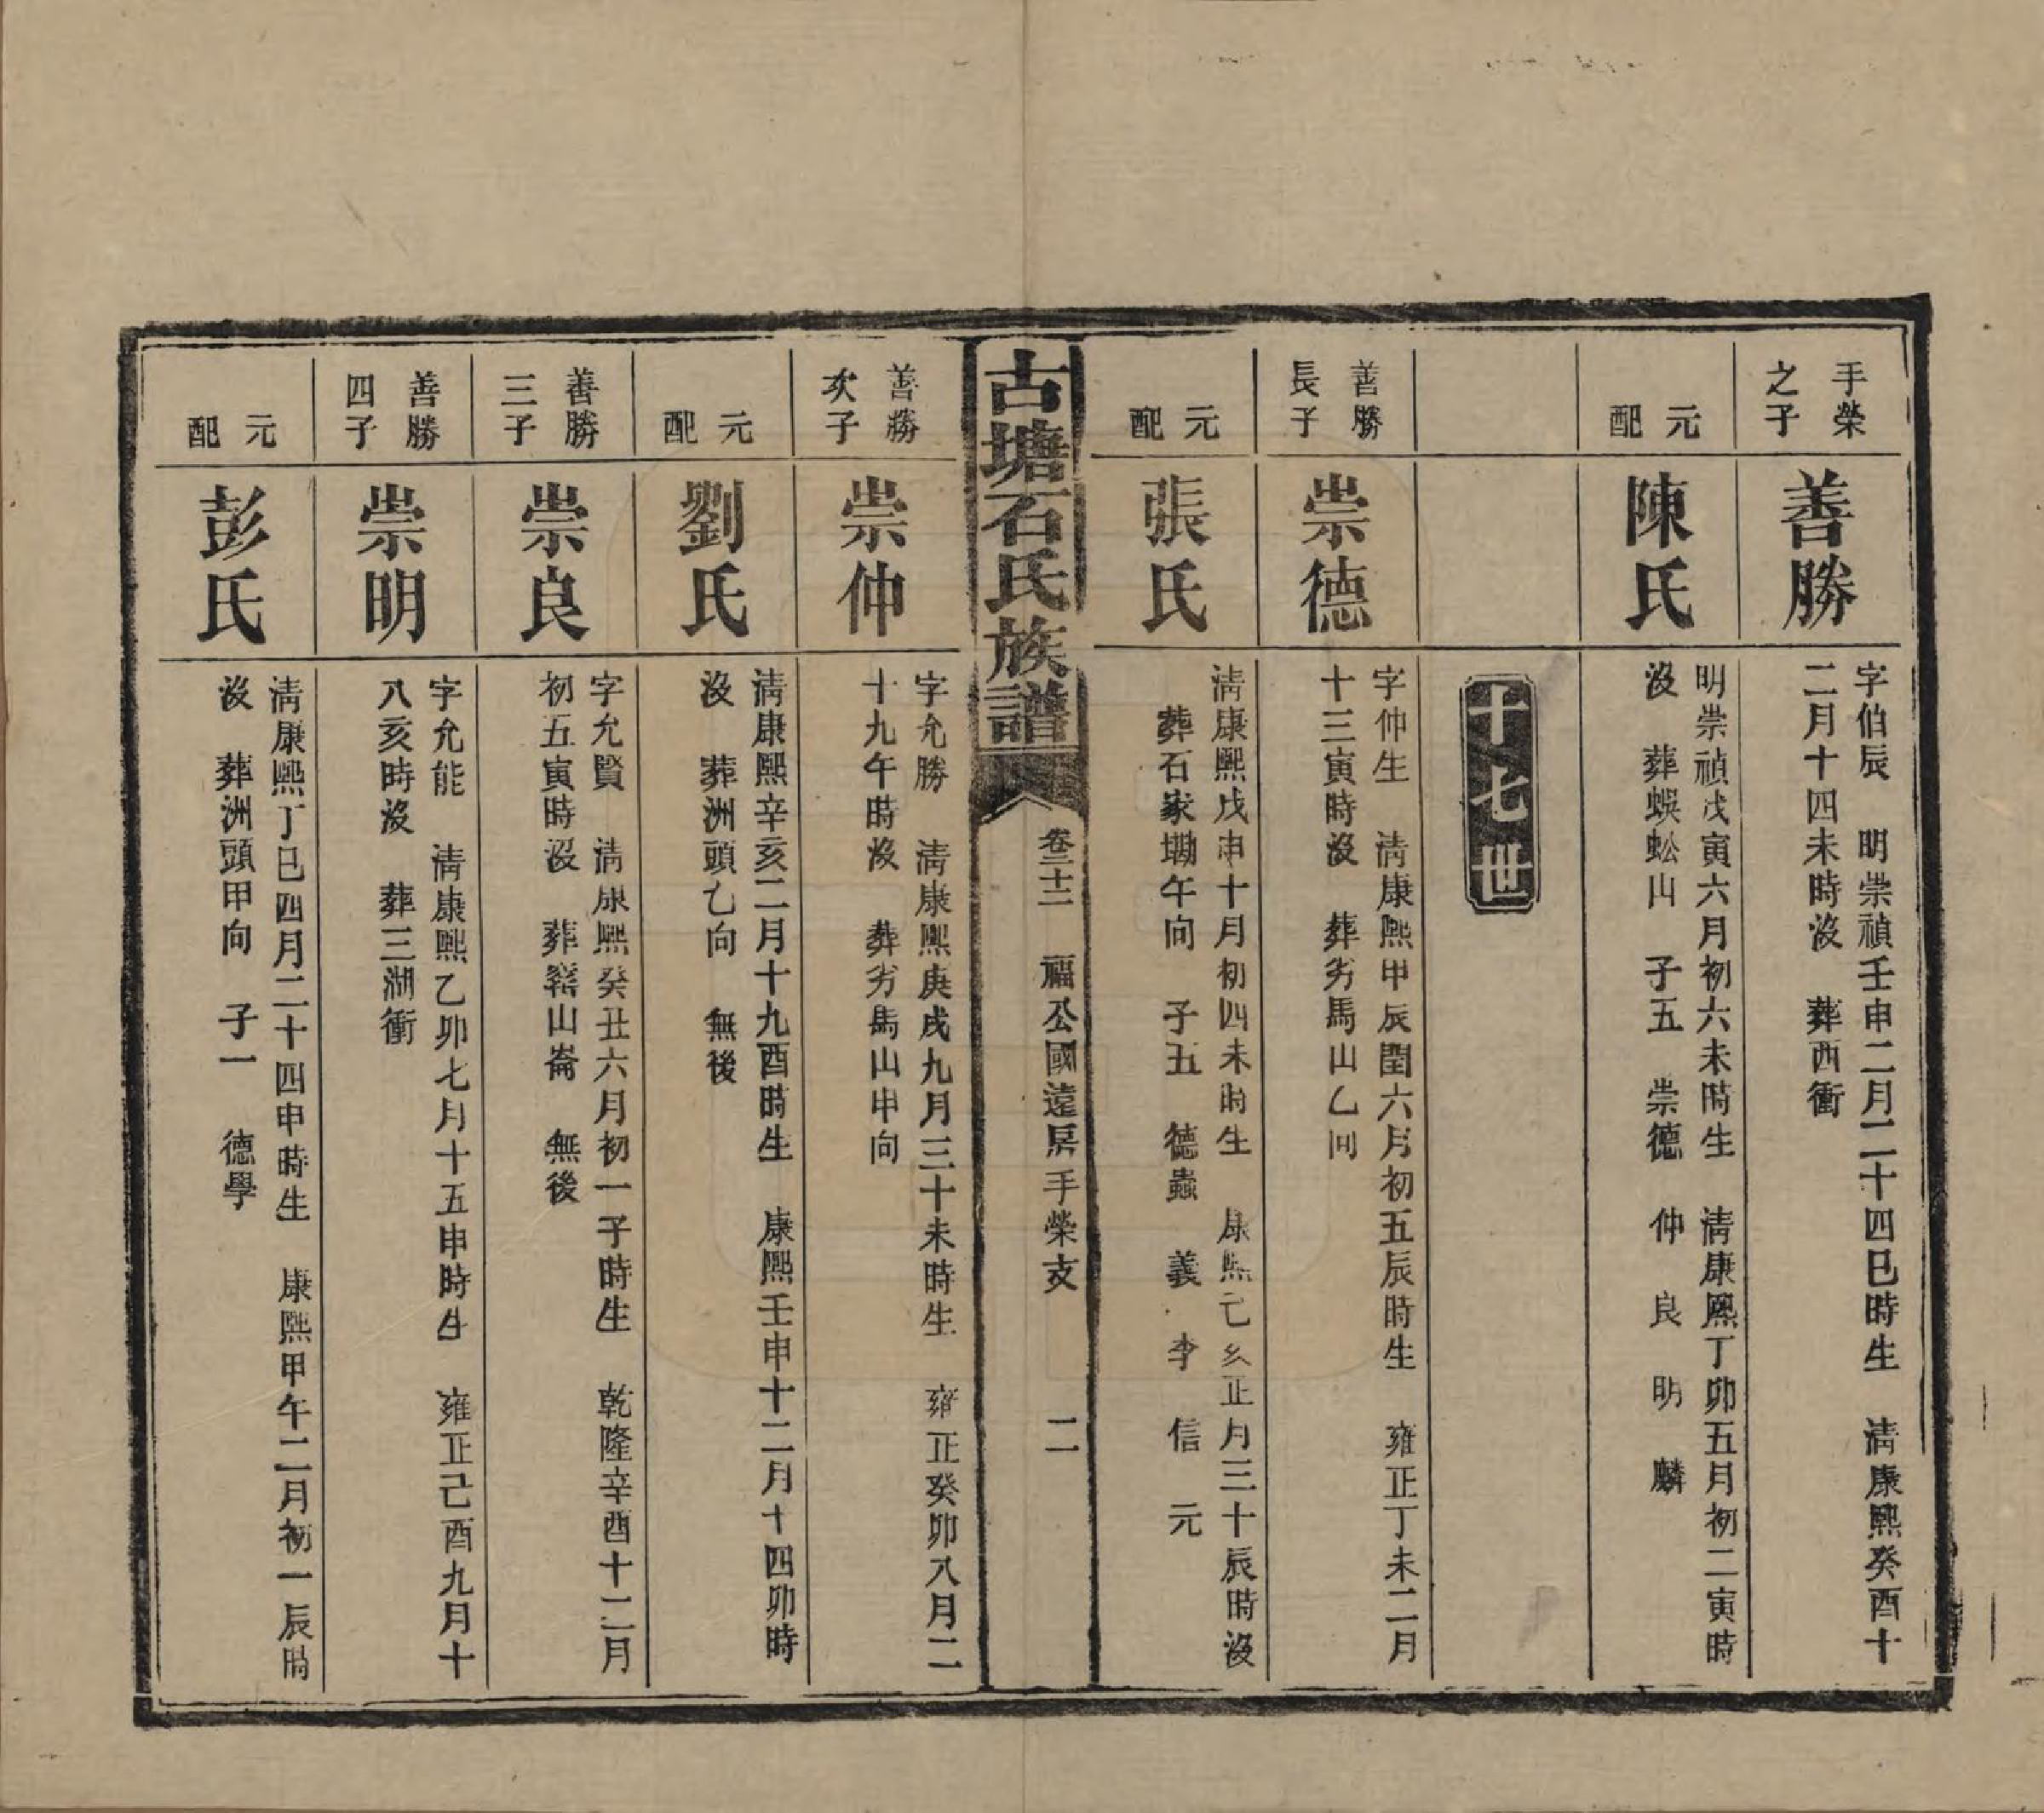 手榮
之子
善勝
字伯辰　明崇禎壬申二月二十四巳時生　清康熙癸酉十
二月十四未時沒　葬西衝
元
配
陳氏
明崇禎戊寅六月初六未時生　清康熙丁卯五月初二寅時
沒　葬蜈蚣山　子五　崇德　仲　良　明　麟
十七世
善勝
長子
崇德
字仲生　清康熙甲辰閏六月初五辰時生　雍正丁未二月
十三寅時沒　葬劣馬山乙向
元
配
張氏
清康熙戊申十月初四未時生　康熙己亥正月三十辰時沒
葬石家塴午向　子五　德蟲　義　李　信　元
古塘石氏族譜
卷二十二　福公國遠房手榮支　二
善勝
次子
崇仲
字允勝　清康熙庚戌九月三十未時生　雍正癸卯八月二
十九午時沒　葬劣馬山申向
元
配
劉氏
清康熙辛亥二月十九酉時生　康熙壬申十二月十四卯時
沒　葬洲頭乙向　無後
善勝
三子
崇良
字允賢　清康熙癸丑六月初一子時生　乾隆辛酉十二月
初五寅時沒　葬窰山崙　無後
善勝
四子
崇明
字允能　清康熙乙卯七月十五申時生　雍正己酉九月十
八亥時沒　葬三湖衝
元
配
彭氏
清康熙丁巳四月二十四申時生　康熙甲午二月初一辰時
沒　葬洲頭甲向　子一　德學